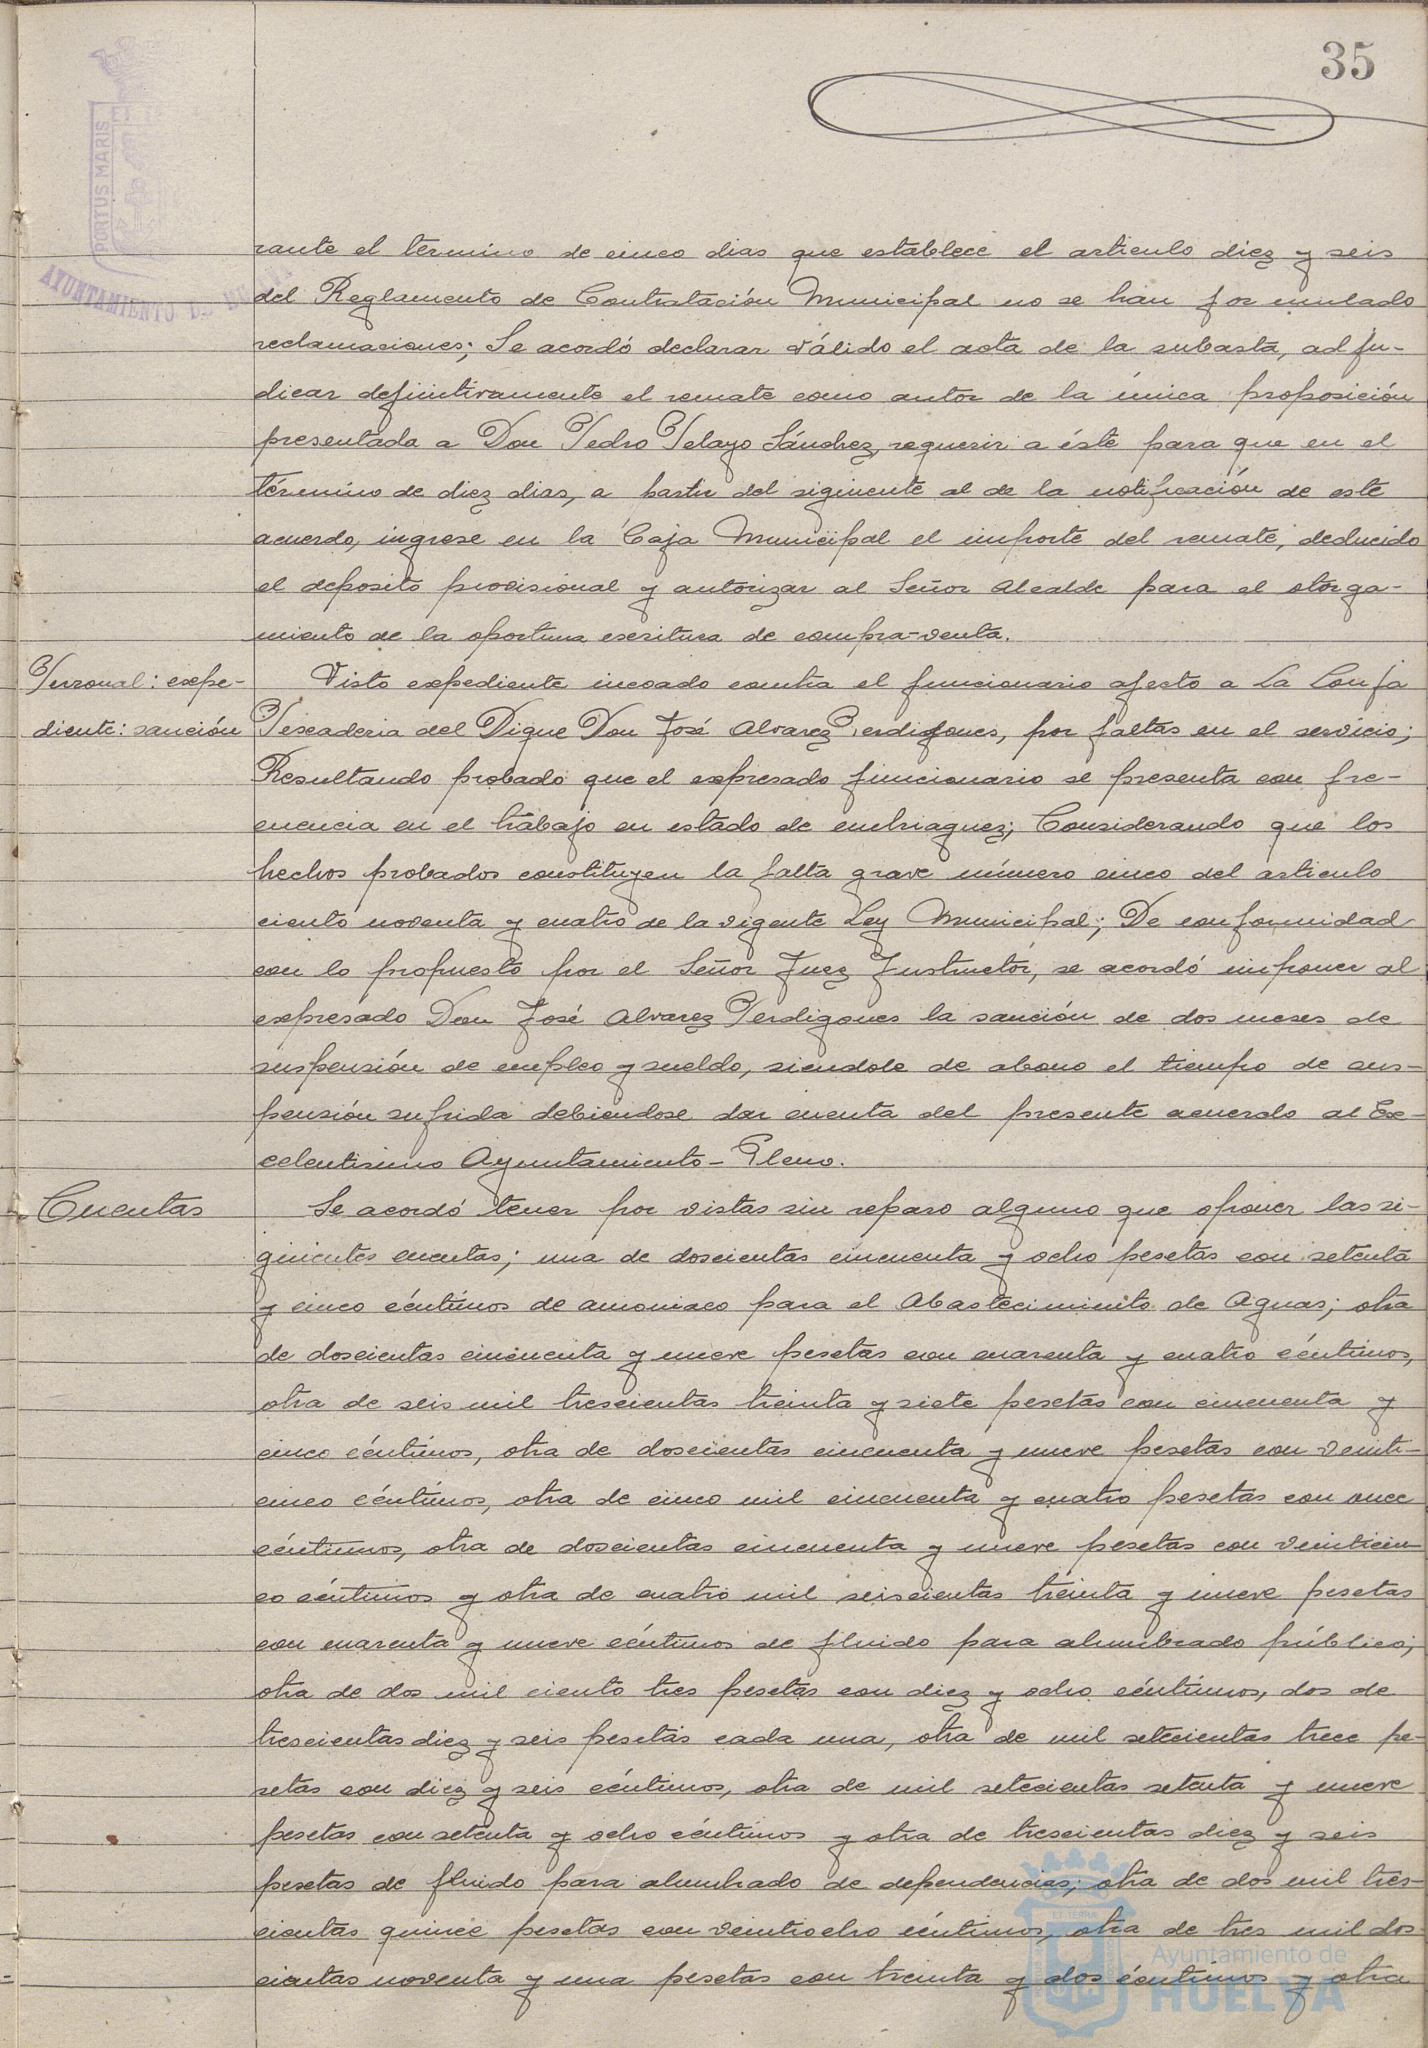 35
PORTUS MARIS
AYUNTAMIENTO DE
rante el término de cinco dias que establece el articulo diez y seis
del Reglamento de Contratación Municipal no se han formulado
reclamaciones; Se acordó declarar válido el acta de la subasta, adju-
dicar definitivamente el remate como autor de la única proposición
presentada a Don Pedro Pelayo Sánchez, requerir a éste para que en el
término de diez dias, a partir del siguiente al de la notificación de este
acuerdo, ingrese en la Caja Municipal el importe del remate, deducido
el deposito provisional y autorizar al Señor Alcalde para el otorga-
miento de la oportuna escritura de compra-venta.
Personal: expe-
diente: sanción
Visto expediente incoado contra el funcionario afecto a la Lonja
Pescaderia del Dique Don José Alvarez Perdigones, por faltas en el servicio;
Resultando probado que el expresado funcionario se presenta con fre-
cuencia en el trabajo en estado de embriaguez; Considerando que los
hechos probados constituyen la falta grave número cinco del articulo
ciento noventa y cuatro de la vigente Ley Municipal; De conformidad
con lo propuesto por el Señor Juez Instructor, se acordó imponer al
expresado Don José Alvarez Perdigones la sanción de dos meses de
suspensión de empleo y sueldo, siendole de abono el tiempo de sus-
pensión sufrida debiendose dar cuenta del presente acuerdo al Ex-
celentisimo Ayuntamiento-Pleno.
Cuentas
Se acordó tener por vistas sin reparo alguno que oponer las si-
guientes cuentas; una de doscientas cincuenta y ocho pesetas con setenta
y cinco céntimos de amoniaco para el Abastecimiento de Aguas; otra
de doscientas cincuenta y nueve pesetas con cuarenta y cuatro céntimos,
otra de seis mil trescientas treinta y siete pesetas con cincuenta y
cinco céntimos, otra de doscientas cincuenta y nueve pesetas con veinti-
cinco céntimos, otra de cinco mil cincuenta y cuatro pesetas con once
céntimos, otra de doscientas cincuenta y nueve pesetas con veinticin-
co céntimos y otra de cuatro mil seiscientas treinta y nueve pesetas
con cuarenta y nueve céntimos de fluido para alumbrado público;
otra de dos mil ciento tres pesetas con diez y ocho céntimos, dos de
trescientas diez y seis pesetas cada una, otra de mil setecientas trece pe-
setas con diez y seis céntimos, otra de mil setecientas setenta y nueve
pesetas con setenta y ocho céntimos y otra de trescientas diez y seis
pesetas de fluido para alumbrado de dependencias; otra de dos mil tres-
cientas quince pesetas con veintiocho céntimos, otra de tres mil dos-
cientas noventa y una pesetas con treinta y dos céntimos y otra
Ayuntamiento de
HUELVA